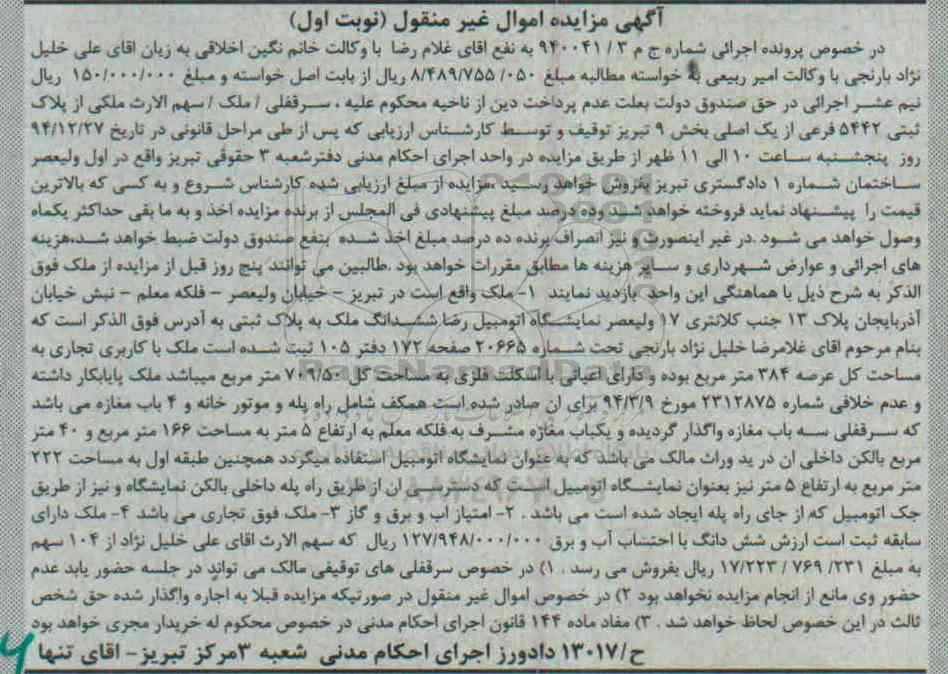 آگهی مزایده اموال غیر منقول (نوبت اول)
در خصوص پرونده اجرائی شماره ج م ۳ / ۹۴۰۰۴۱ به نفع اقای غلام رضا با وکالت خانم نگین اخلاقی به زیان اقای علی خلیل
نژاد بارنجی با وکالت امیر ربیعی به خواسته مطالبه مبلغ ۰۵۰/ ۸/۴۸۹/۷۵۵ ریال از بابت اصل خواسته و مبلغ ۱۵۰/۰۰۰/۰۰۰ ریال
نیم عشر اجرائی در حق صندوق دولت بعلت عدم پرداخت دین از ناحیه محکوم علیه ، سرقفلی / ملک / سهم الارث ملکی از پلاک
ثبتی ۵۴۴۲ فرعی از یک اصلی بخش ۹ تبریز توقیف و توسط کارشناس ارزیابی که پس از طی مراحل قانونی در تاریخ ۹۴/۱۲/۲۷
روز پنجشنبه ساعت ۱۰ الی ۱۱ ظهر از طریق مزایده در واحد اجرای احکام مدنی دفترشعبه ۳ حقوقی تبریز واقع در اول ولیعصر
ساختمان شماره ۱ دادگستری تبریز بفروش خواهد رسید .مزایده از مبلغ ارزیابی شده کارشناس شروع و به کسی که بالاترین
قیمت را پیشنهاد نماید فروخته خواهد شد وده درصد مبلغ پیشنهادی فی المجلس از برنده مزایده اخذ و به ما بقی حداکثر یکماه
وصول خواهد می شود .در غیر اینصورت و نیز انصراف برنده ده درصد مبلغ اخذ شده بنفع صندوق دولت ضبط خواهد شد.هزینه
های اجرائی و عوارض شهرداری و سایر هزینه ها مطابق مقررات خواهد بود .طالبین می توانند پنج روز قبل از مزایده از ملک فوق
الذکر به شرح ذیل با هماهنگی این واحد بازدید نمایند ۱- ملک واقع است در تبریز – خیابان ولیعصر – فلکه معلم – نبش خیابان
آذربایجان پلاک ۱۳ جنب کلانتری ۱۷ ولیعصر نمایشگاه اتومبیل رضا ششدانگ ملک به پلاک ثبتی به آدرس فوق الذکر است که
بنام مرحوم اقای غلامرضا خلیل نژاد بارنجی تحت شماره ۲۰۶۶۵ صفحه ۱۷۲ دفتر ۱۰۵ ثبت شده است ملک با کاربری تجاری به
مساحت کل عرصه ۳۸۴ متر مربع بوده و دارای اعیانی با اسکلت فلزی به مساحت کل ۷۰۹/۵۰ متر مربع میباشد ملک پایابکار داشته
و عدم خلافی شماره ۲۳۱۲۸۷۵ مورخ ۹۴/۳/۹ برای ان صادر شده است همکف شامل راه پله و موتور خانه و ۴ باب مغازه می باشد
که سرقفلی سه باب مغازه واگذار گردیده و یکباب مغازه مشرف به فلکه معلم به ارتفاع ۵ متر به مساحت ۱۶۶ متر مربع و ۴۰ متر
مربع بالکن داخلی ان در ید وراث مالک می باشد که به عنوان نمایشگاه اتومبیل استفاده میگردد همچنین طبقه اول به مساحت ۲۲۲
متر مربع به ارتفاع ۵ متر نیز بعنوان نمایشگاه اتومبیل است که دسترسی ان از طریق راه پله داخلی بالکن نمایشگاه و نیز از طریق
جک اتومبیل که از جای راه پله ایجاد شده است می باشد . ۲- امتیاز اب و برق و گاز ۳- ملک فوق تجاری می باشد ۴- ملک دارای
سابقه ثبت است ارزش شش دانگ با احتساب آب و برق ۱۲۷/۹۴۸/۰۰۰/۰۰۰ ریال که سهم الارث اقای علی خلیل نژاد از ۱۰۴ سهم
به مبلغ ۲۳۱/ ۷۶۹ / ۱۷/۲۲۳ ریال بفروش می رسد . ۱) در خصوص سرقفلی های توقیفی مالک می تواند در جلسه حضور یابد عدم
حضور وی مانع از انجام مزایده نخواهد بود ۲) در خصوص اموال غیر منقول در صورتیکه مزایده قبلا به اجاره واگذار شده حق شخص
ثالث در این خصوص لحاظ خواهد شد . ۳) مفاد ماده ۱۴۴ قانون اجرای احکام مدنی در خصوص محکوم له خریدار مجری خواهد بود
ح/۱۳۰۱۷ دادورز اجرای احکام مدنی شعبه ۳مرکز تبریز – اقای تنها
ParsNamadData